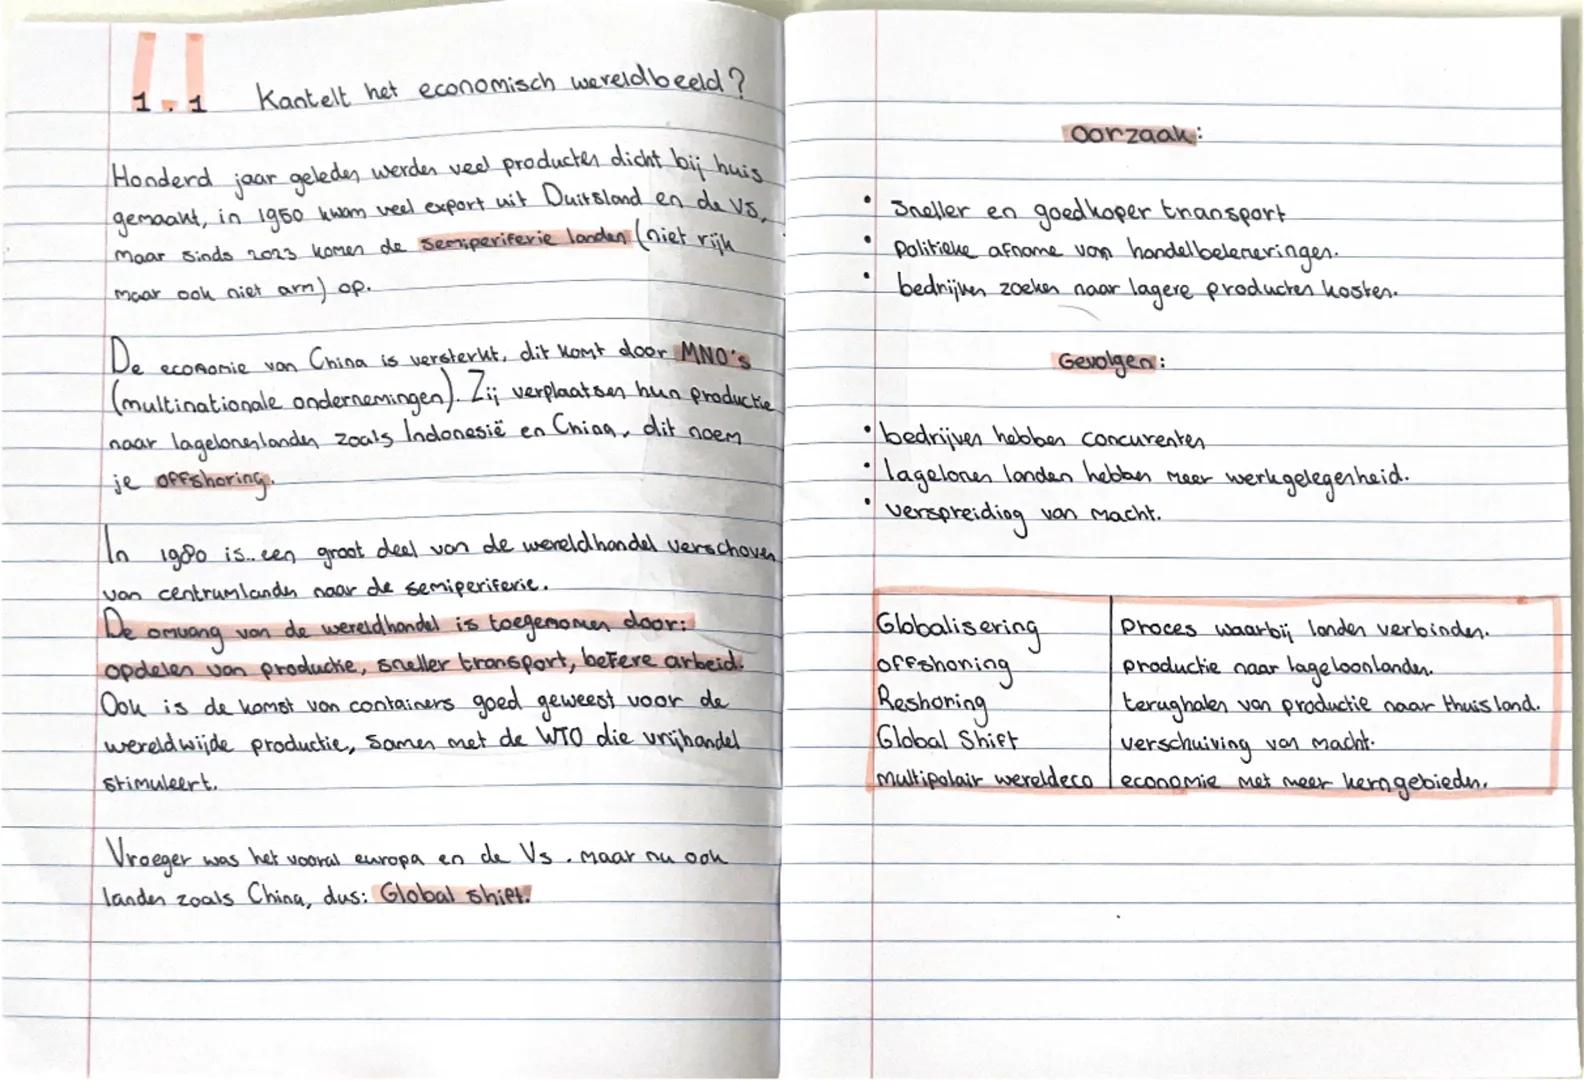 1.1 Kantelt het economisch wereldbeeld?
Honderd jaar geleden werden veel producten dicht bij huis
gemaakt, in 1950 kwam veel export uit Duitsland en de VS,
maar sinds 2023 komen de semiperiferie landen (niet rijk
maar ook niet arm) op.
De economie van China is versterkt, dit komt door MNO's
(multinationale ondernemingen). Zij verplaatsen hun productie
naar lagelonenlanden zoals Indonesië en China, dit noem
je offshoring.
In 1980 is een groot deel van de wereldhandel verschoven
van centrumlanden naar de semiperiferie.
De omvang van de wereldhandel is toegenomen door:
opdelen van productie, sneller transport, betere arbeid.
Ook is de komst van containers goed geweest voor de
wereldwijde productie, samen met de WTO die vrijhandel
stimuleert.
Vroeger was het vooral europa en de Vs. maar nu ook
landen zoals China, dus: Global shift.
Oorzaak:
• Sneller en goedkoper transport
• Politieke afname van handelbelemeringen.
• bedrijven zoeken naar lagere producten kosten.
Gevolgen:
• bedrijven hebben concurenten
• lagelonen landen hebben meer werkgelegenheid.
• verspreiding van macht.
Globalisering Proces waarbij landen verbinden.
offshoring productie naar lageloonlanden.
Reshoring terughalen van productie naar thuisland.
Global Shift verschuiving van macht.
multipolair wereldeco economie met meer kerngebieden.